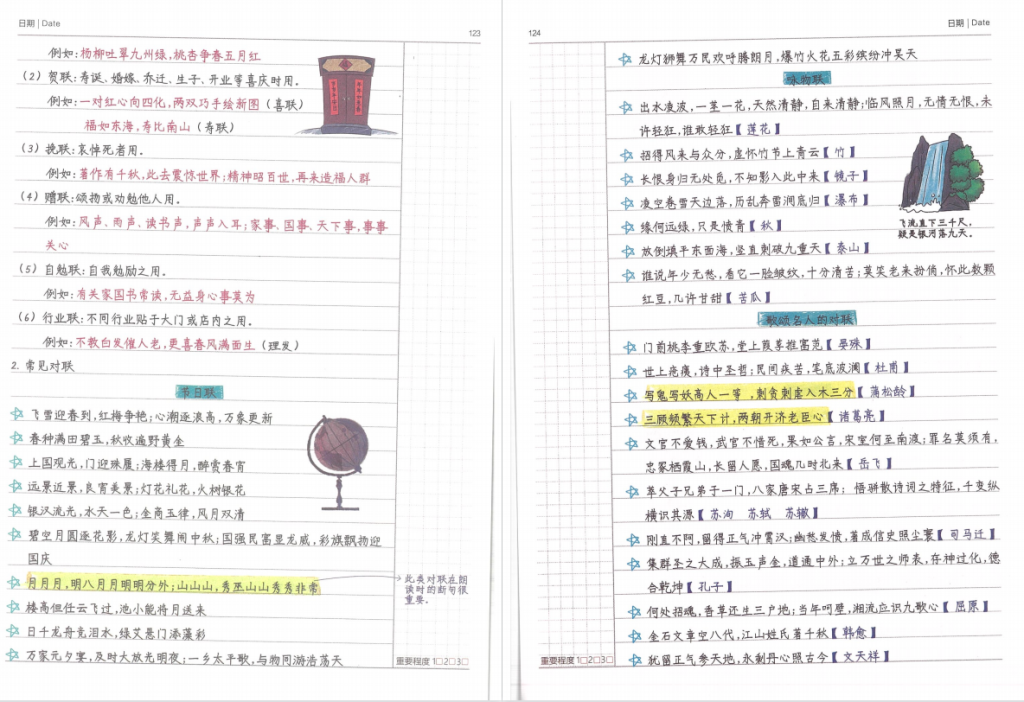 日期 | Date
123
例如:杨柳吐翠九州绿,桃杏争春五月红
(2) 贺联:寿诞、婚嫁、乔迁、生子、开业等喜庆时用。
例如:一对红心向四化,两双巧手绘新图(喜联)
福如东海,寿比南山(寿联)
(3) 挽联:哀悼死者用。
例如:著作有千秋,此去震惊世界;精神昭百世,再来造福人群
(4) 赠联:颂扬或劝勉他人用。
例如:风声、雨声、读书声,声声入耳;家事、国事、天下事,事事
关心
(5) 自勉联:自我勉励之用。
例如:有关家国书常读,无益身心事莫为
(6) 行业联:不同行业贴于大门或店内之用。
例如:不教白发催人老,更喜春风满面生(理发)
2. 常见对联
节日联
飞雪迎春到,红梅争艳;心潮逐浪高,万象更新
春种满田碧玉,秋收遍野黄金
上国观光,门迎珠履;海楼得月,醉赏春宵
远景近景,良宵美景;灯花礼花,火树银花
银汉流光,水天一色;金商五律,风月双清
碧空月圆逐花影,龙灯笑舞闹中秋;国强民富显龙威,彩旗飘扬迎
国庆
月月月,明八月月明明分外;山山山,秀巫山山秀秀非常
此类对联在朗
读时的断句很
重要。
楼高但任云飞过,池小能将月送来
日千龙舟竞泪水,绿艾悬门添藻彩
万家元夕宴,及时大放光明夜;一乡太平歌,与物同游浩荡天
重要程度 1□2□3□
日期 | Date
124
龙灯狮舞万民欢呼腾朗月,爆竹火花五彩缤纷冲昊天
咏物联
出水凌波,一茎一花,天然清静,自来清静;临风照月,无情无恨,未
许轻狂,谁敢轻狂【莲花】
招得风来与众分,虚怀竹节上青云【竹】
长恨身归无处觅,不知影入此中来【镜子】
凌空卷雪天边落,历乱奔雷涧底归【瀑布】
缘何远绿,只是愤青【秋】
放倒填平东西海,竖直刺破九重天【泰山】
谁说年少无愁,看它一脸皱纹,十分清苦;莫笑老来扮俏,怀此数颗
红豆,几许甘甜【苦瓜】
飞流直下三千尺,
疑是银河落九天。
歌颂名人的对联
门前桃李重欧苏,堂上葭莩推富范【晏殊】
世上疮痍,诗中圣哲;民间疾苦,笔底波澜【杜甫】
写鬼写妖高人一等,刺贪刺虐入木三分【蒲松龄】
三顾频繁天下计,两朝开济老臣心【诸葛亮】
文官不爱钱,武官不惜死,果如公言,宋室何至南渡;罪名莫须有,
忠冢栖霞山,长留人愿,国魂几时北来【岳飞】
萃父子兄弟于一门,八家唐宋占三席;悟骈散诗词之特征,千变纵
横识其源【苏洵 苏轼 苏辙】
刚直不阿,留得正气冲霄汉;幽愁发愤,著成信史照尘寰【司马迁】
集群圣之大成,振玉声金,道通中外;立万世之师表,存神过化,德
合乾坤【孔子】
何处招魂,香草还生三户地;当年呵壁,湘流应识九歌心【屈原】
金石文章空八代,江山姓氏著千秋【韩愈】
犹留正气参天地,永剩丹心照古今【文天祥】
重要程度 1□2□3□